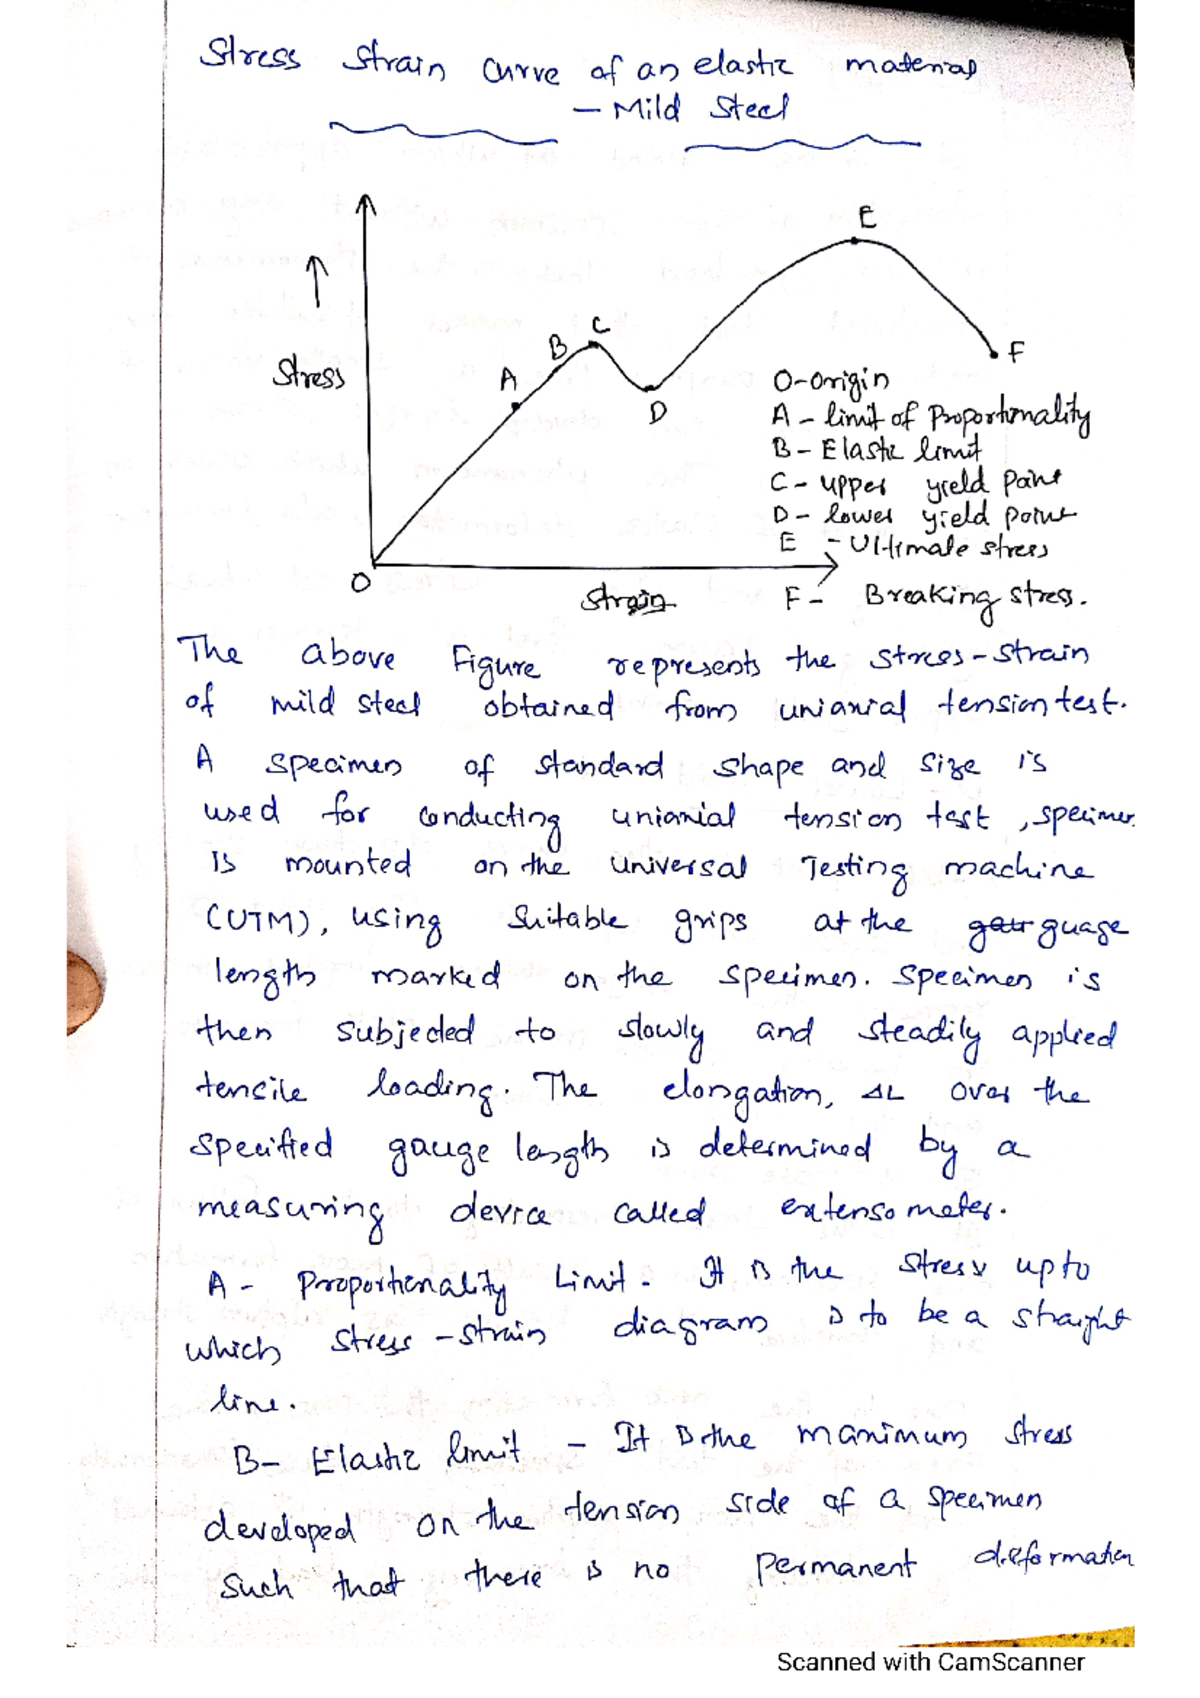 Stress strain curve of an elastic material
- Mild Steel
E
C
B
F
Stress
A
D
O-Origin
A - limit of Proportionality
B - Elastic limit
C - upper yield point
D - lower yield point
E - Ultimate stress
O
Strain
F - Breaking stress.
The above Figure represents the stress-strain
of mild steel obtained from uniaxial tension test.
A specimen of standard shape and size is
used for conducting uniaxial tension test, specimen
is mounted on the Universal Testing machine
(UTM), using suitable grips at the guage
length marked on the specimen. Specimen is
then subjected to slowly and steadily applied
tensile loading. The elongation, ΔL over the
specified gauge length is determined by a
measuring device called extensometer.
A - Proportionality Limit. It is the stress upto
which stress-strain diagram is to be a straight
line.
B- Elastic limit - It is the maximum stress
developed on the tension side of a specimen
such that there is no permanent deformation
Scanned with CamScanner